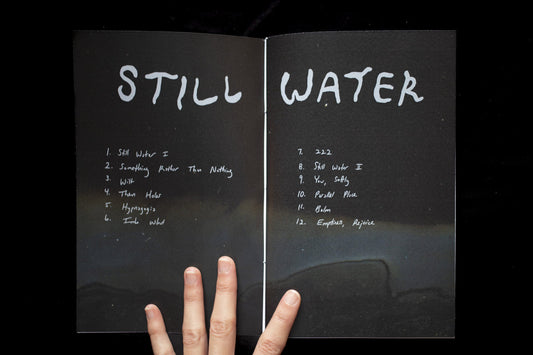 STILL WATER
1. Still Water I
2. Something Rather Than Nothing
3. Wilt
4. Then Hold
5. Hypnagogia
6.
7. 222
8. Still Water II
9. You, Softly
10. Place
11. Balm
12. Emptiness, Rejoice